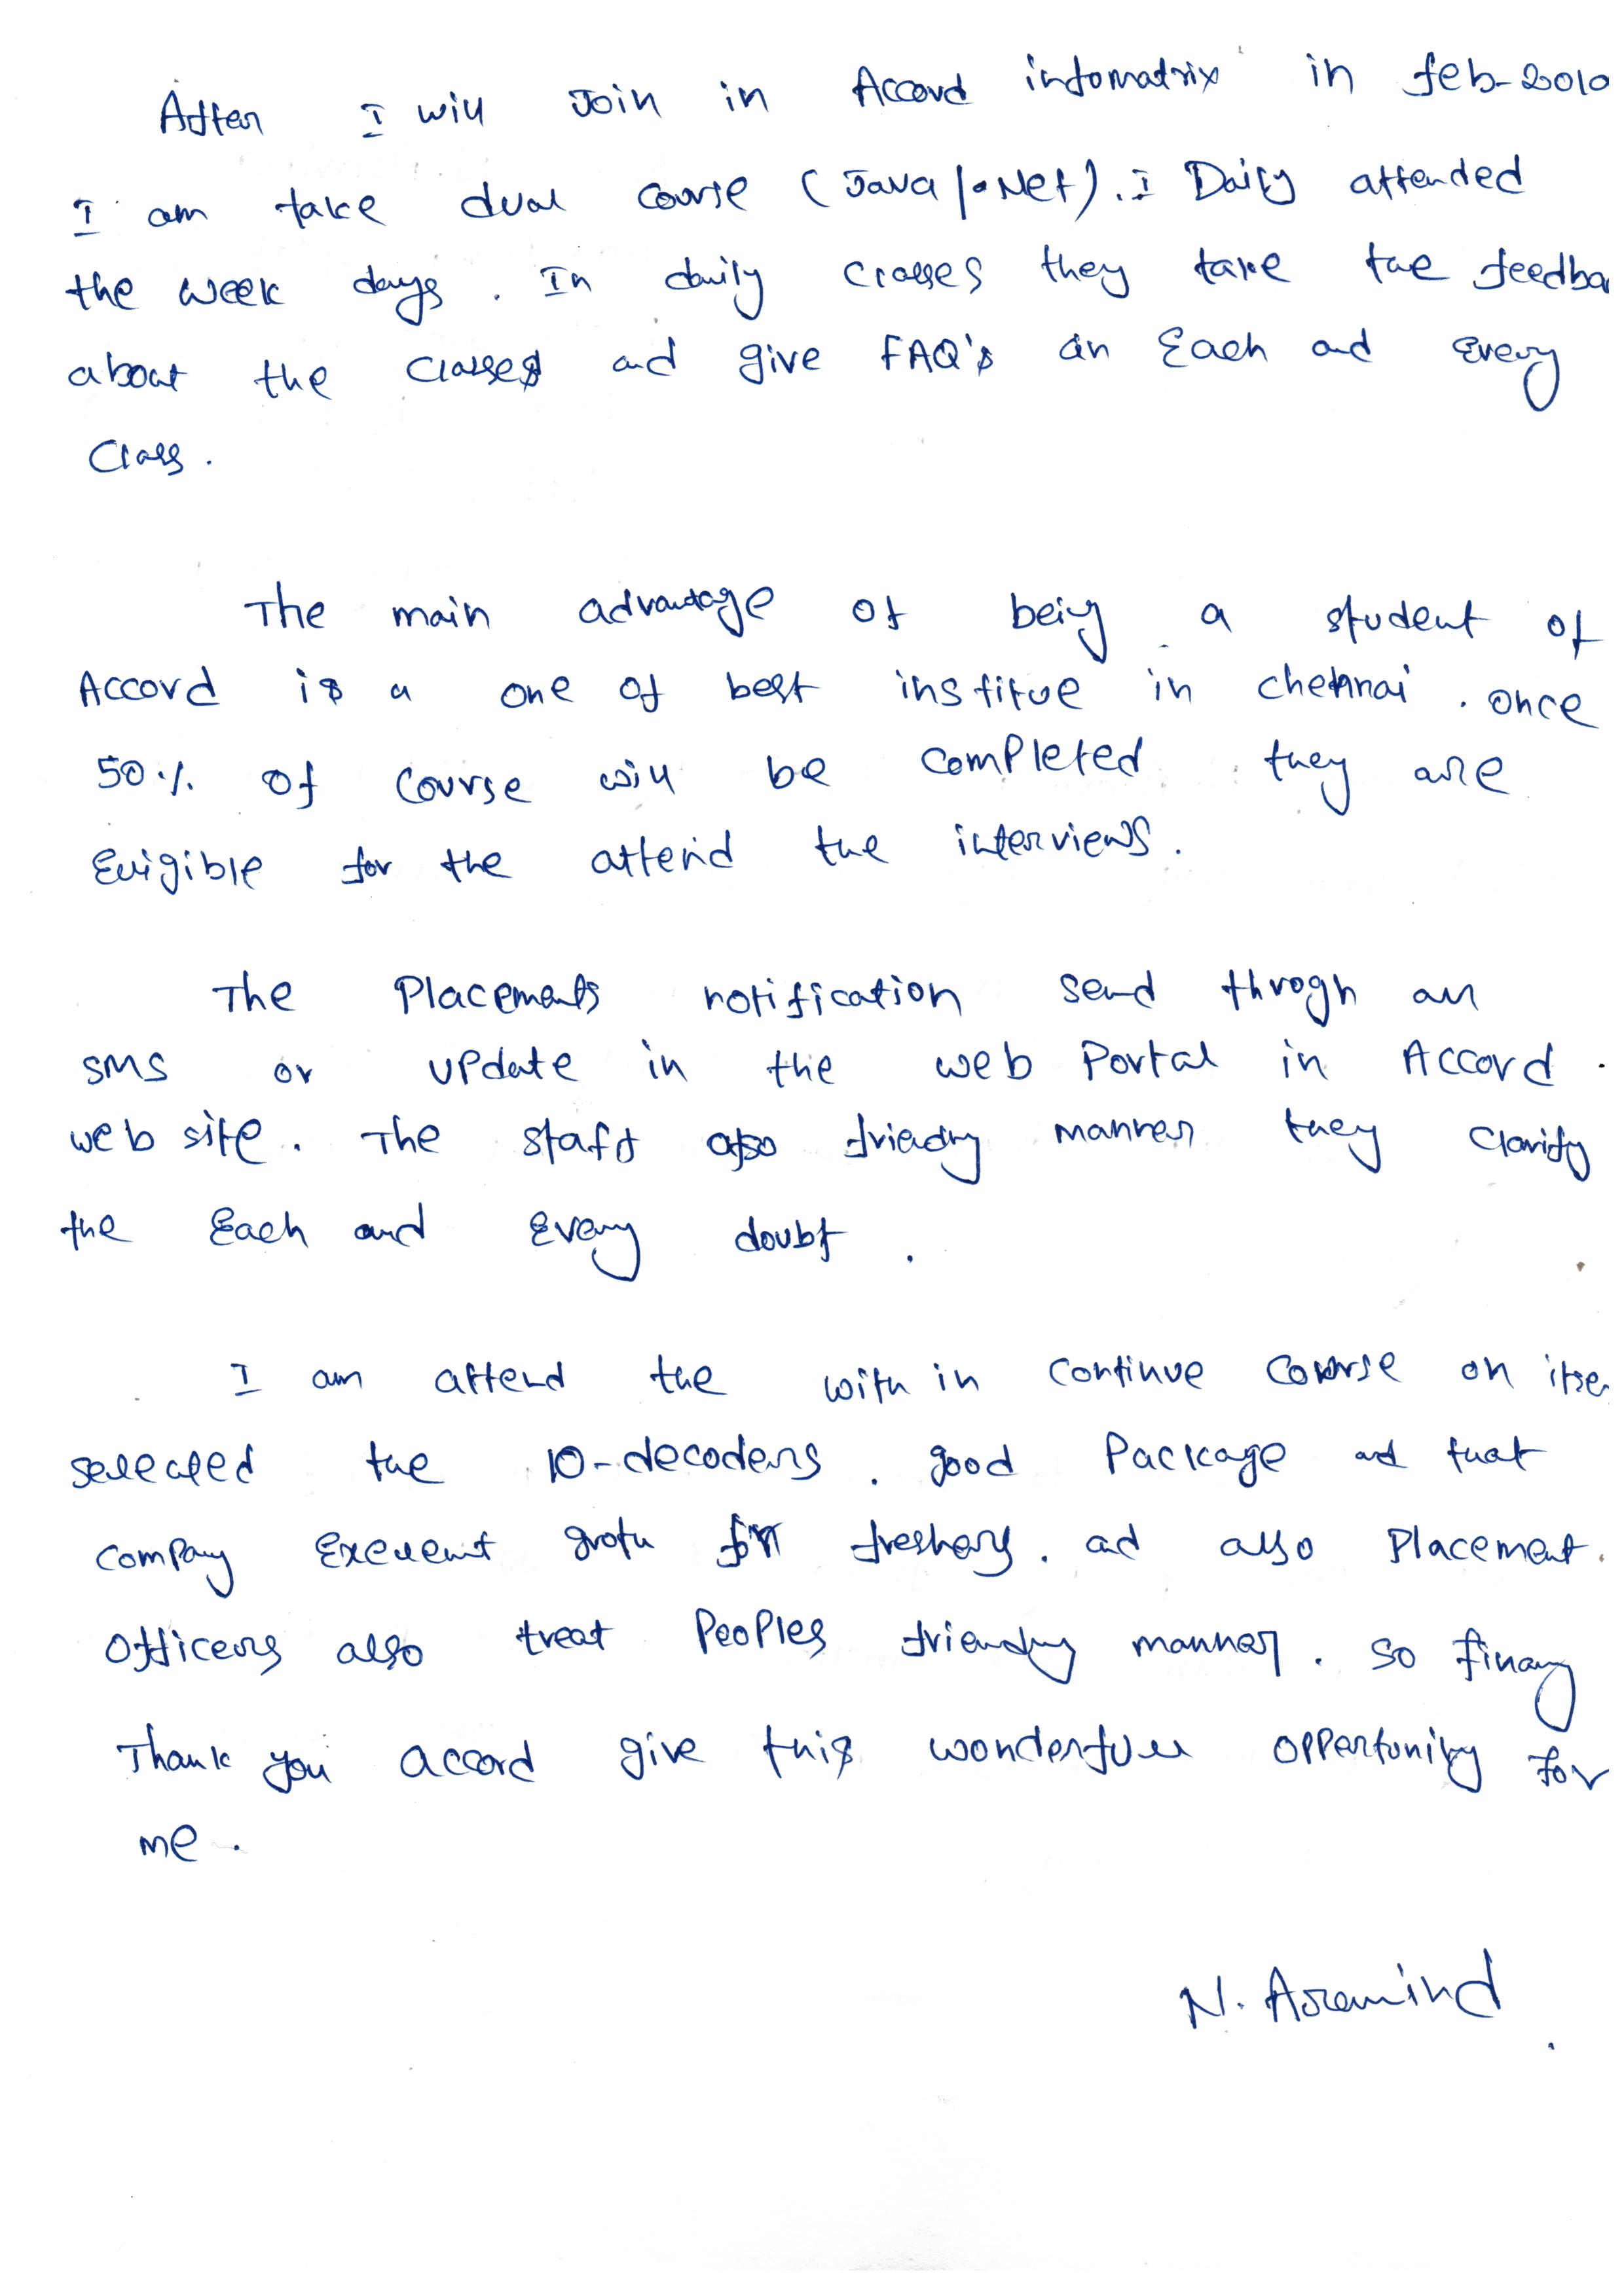 After I will Join in Accord infomatrix in feb-2010
I am take dual course (Java/.Net). I Daily attended
the week days. In daily classes they take the feedba
about the classes and give FAQ's an Each and Every
Class.
The main advantage of being a student of
Accord is a one of best institue in chennai. once
50% of course will be completed they are
Eligible for the attend the interviews.
The Placements notification send throgh an
SMS or update in the web portal in Accord
web site. The staff also friendly manner they clarify
the Each and Every doubt.
I am attend the with in continue course on itse
selected the 10-decoders. good Package and that
company Excellent groth for freshers. ad also Placement
Officers also treat Peoples friendly manner. So finally
Thank you accord give this wonderfull oppertunity for
me.
N. Aravind